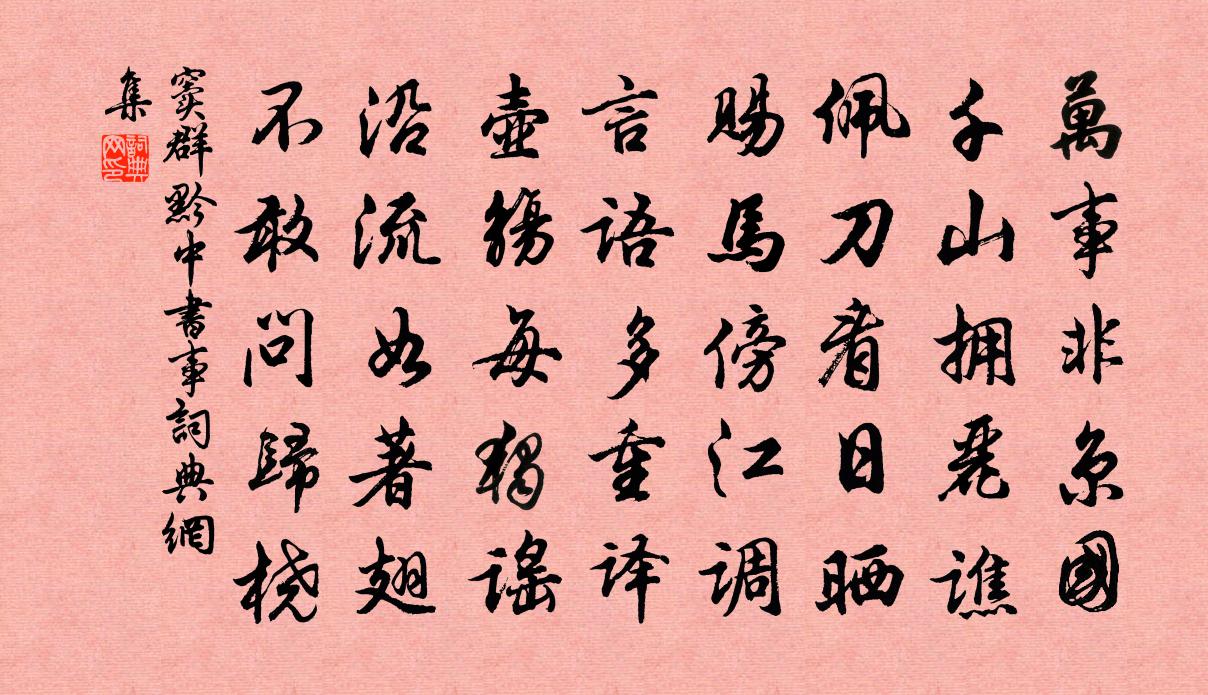 萬事非京國
千山拥麗譙
佩刀看日晒
賜馬傍江调
言語多重译
壺觴每獨謠
沿流如著翅
不敢問歸桡
竇群黔中書事詞典網
集
詞典网印